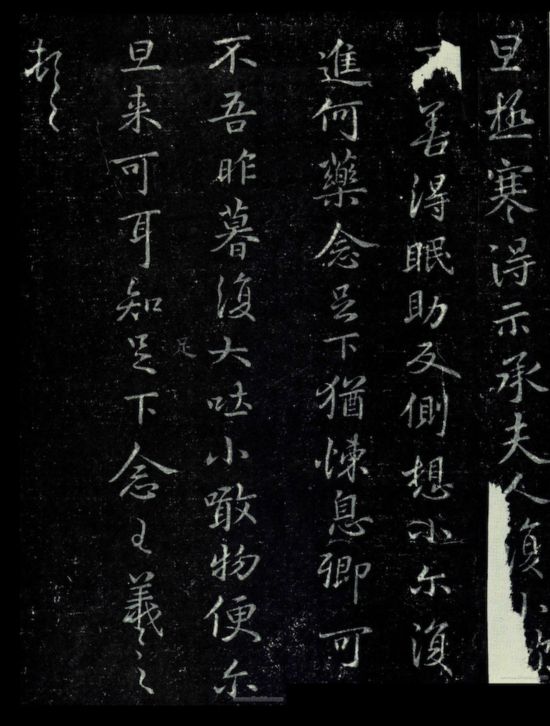 旦極寒得示承夫人復小
善得眠助反側想小尔復
進何藥念足下猶悚息卿可
不吾昨暮復大吐小噉物便尔
足
旦来可耳知足下念王羲之
頓首